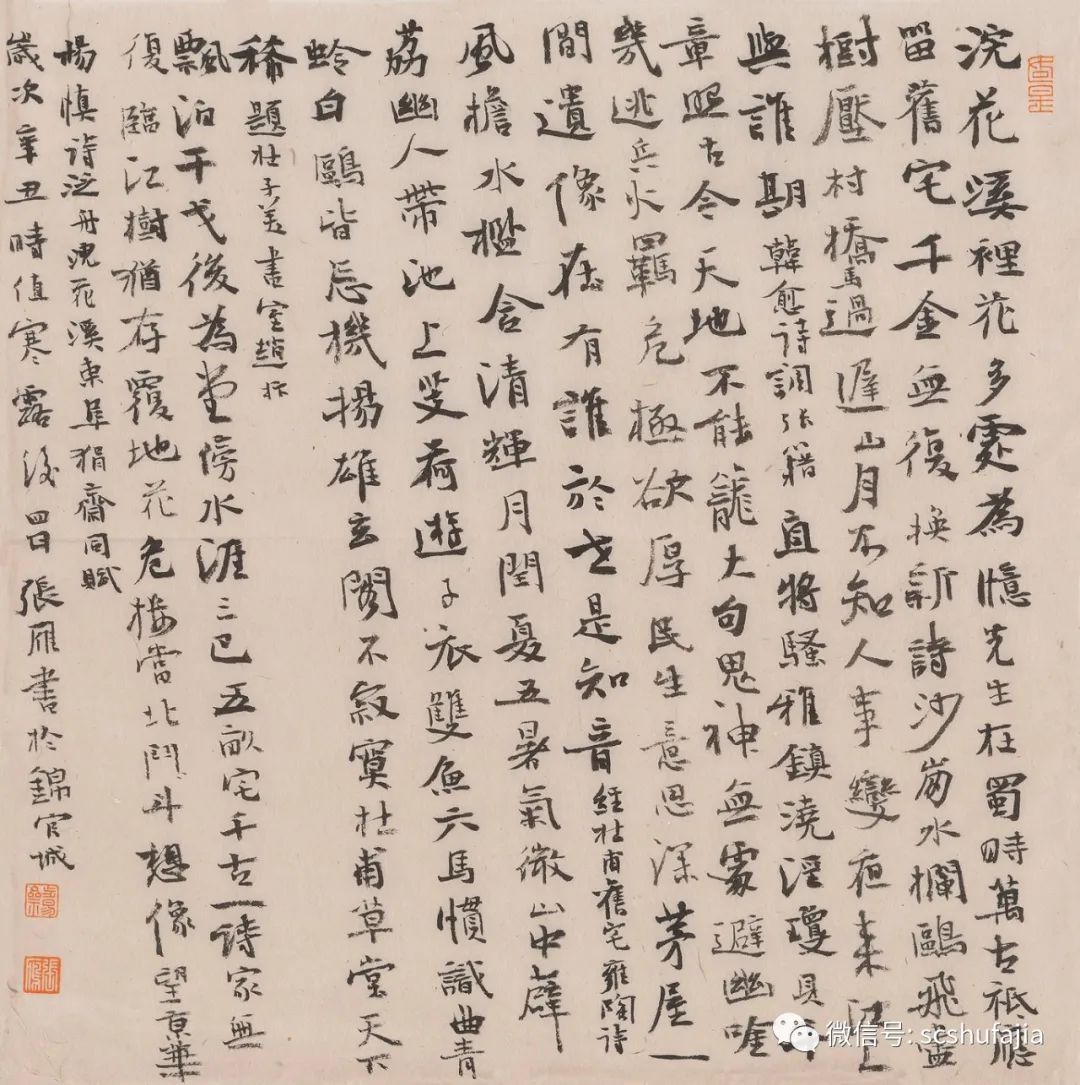 浣花溪裡花多處為憶先生在蜀時萬古祇應
留舊宅千金無復換新詩沙崩水欄鷗飛盡
樹壓村橋馬過遲山月不知人事變夜來江上
與誰期韓愈詩調張籍直將騷雅鎮澆淫瓊貝
章照古今天地不能籠大句鬼神無處避幽唫
幾逃兵火羈危極欲厚民生意思深茅屋一
間遺像在有誰於世是知音經杜甫舊宅雍陶詩
風檐水檻含清輝月閏夏五暑氣微山中薜
荔幽人帶池上芰荷遊子衣雙魚六馬慣識曲青
蛉白鷗皆忘機揚雄玄閣不寂寞杜甫草堂天下
稀題杜子美書室趙抃
飄泊干戈後為堂傍水涯三巴五畝宅千古一詩家無
復臨江樹猶存覆地花危樓當北鬥斗想像望京華
楊慎詩泛舟浣花溪東阜狷齋同賦
歲次辛丑時值寒露後四日張雁書於錦官城
微信号: scshufajia